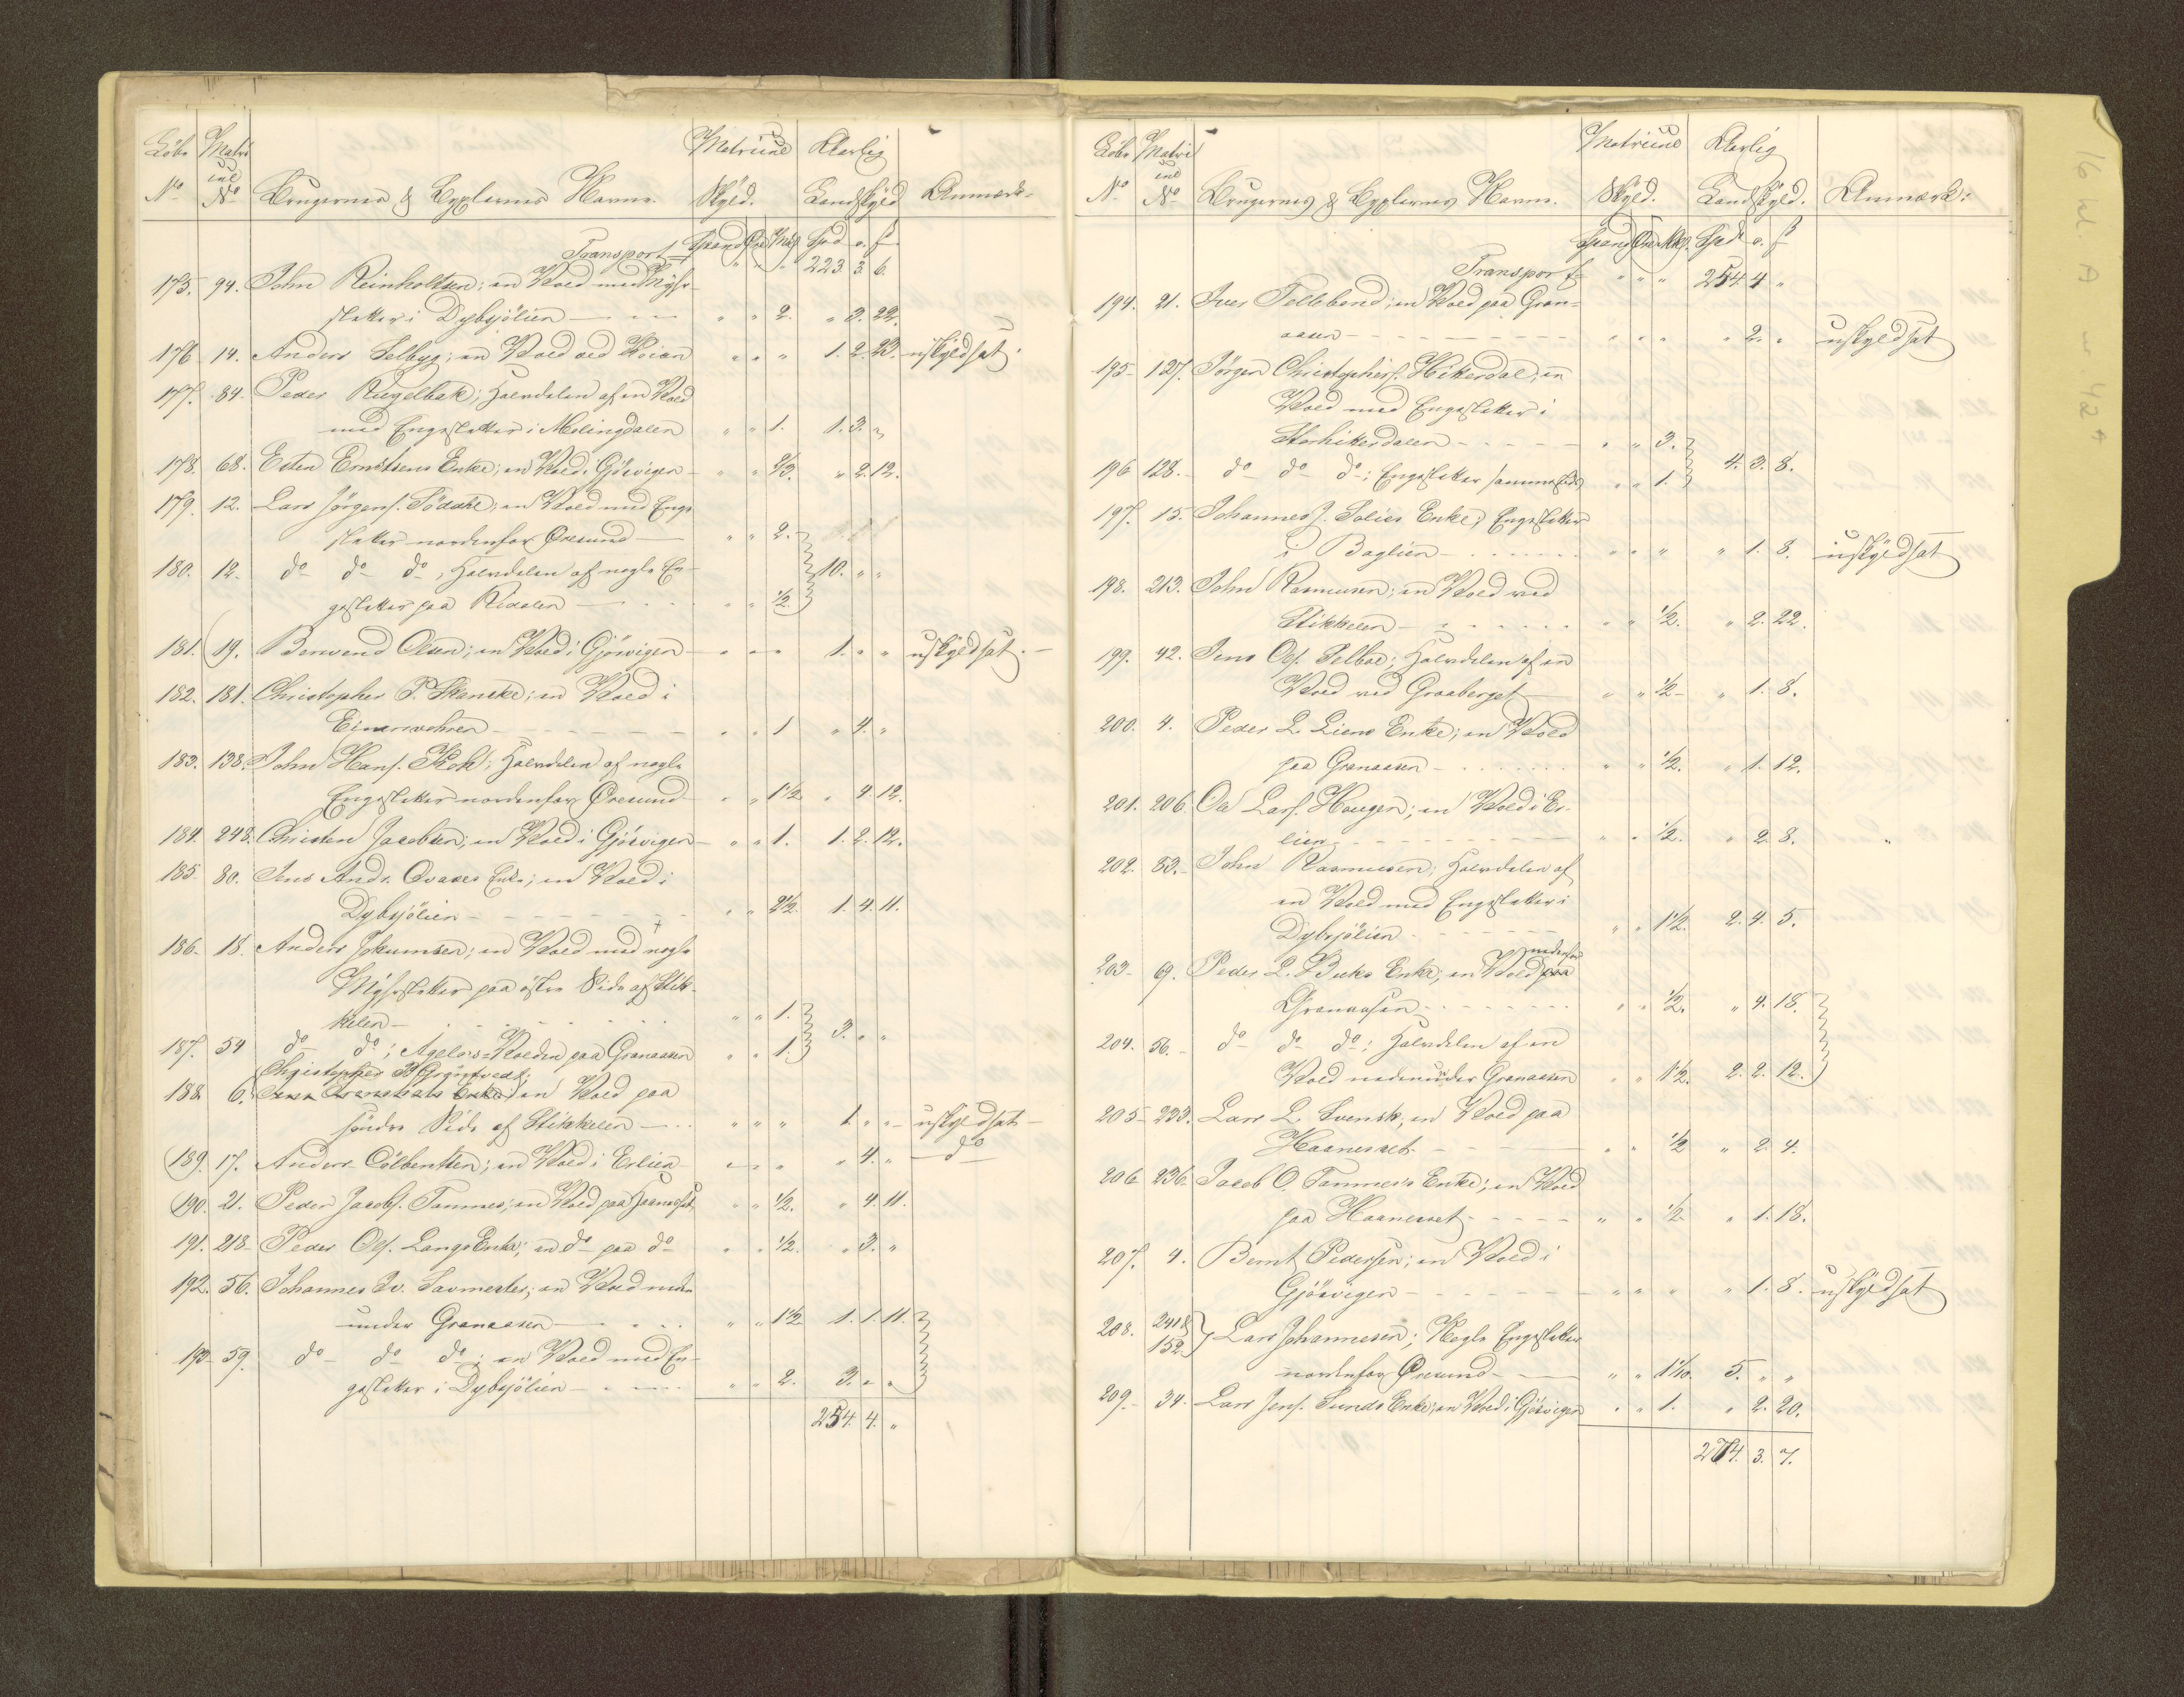 Löbe Matri Matricul Aarlig
cul
No No Brugernes & Byxlernes Navne. Skyld. Landskyld Anmærk:
Spand Øre Mkl. Spd o. ß
Transport " " " 223. 3. 6.
175. 94. John Reinholtsen; en Vold med Myhr-
sletter i Dybsjölien " " 2. " 3. 22.
176 14. Anders Selbyg; en Vold ved Veien " " " 1. 2. 23. uskyldsat.
177. 84. Peder Kugelbak; Halvdelen af en Vold
med Engesletter i Molingdalen " " 1. 1. 3. "
178. 68. Esten Erntsens Enke; en Vold i Gjösvigen " " 2/3. " 2. 12.
179. 12. Lars Jörgens. Födahl; en Vold med Enge
sletter nordenfor Øresund " " 2.
180. 12. do do do; Halvdelen af nogle En-
gesletter paa Kidalen " " 1/2. 10. " "
181. 19. Bernend Olsen; en Vold i Gjösvigen " " " 1. " " uskyldsat.
182. 181. Christopher P. Skancke; en Vold i
Einarsvolden " " 1 " 4. "
183. 138. John Hans. Kok; Halvdelen af nogle
Engesletter nordenfor Øresund " " 1 1/2 " 2. 12.
184. 248. Christen Jacobsen; en Vold i Gjösvigen " " 1. 1. 2. 12.
185 80. Jens And. Ovaces Enke; en Vold i
Dybsjölien " " 2 1/2. 1. 4. 11.
186. 18. Anders Jokumsen; en Vold med nogle
Myhrsletter paa östre Side af Stik-
kelen " " 1.
187. 54 do do; Agelois-Volden paa Granaasen " " 1. 3. " "
Christopher B Gröntvedt;
188. 6. Enke en Vold paa
söndre Side af Stikkelen " " " 1. " " uskyldsat
189. 17. Anders Colbentsen; en Vold i Erlien " " " " 4. " do
190. 21. Peder Jacobs. Tamnes; en Vold paa Haanesset, " " 1/2. " 4. 11.
191. 218 Peder Ols. Langs Enke; en do paa do " " 1/2. " 3. "
192. 56. Johannes Iv. Savmester; en Vold neden
under Granaasen " " 1 1/2 1. 1. 11.
193 59. do do do; en Vold med En-
gesletter i Dybsjölien " " 2. 3. " "
254. 4. "
Löbe Matri Matricul Aarlig
cul
No. No Brugernes & Byxlernes Navne. Skyld. Landskyld. Anmærk:
Spand Øre Mkl. Spd o. ß
Transport " " " 254. 4 "
194. 21. Iver Tollebend; en Vold paa Gran-
aasen " " " " 2. " uskyldsat
195 127. Jörgen Christophers. Hitterdal; en
Vold med Engesletter i
Storhitterdalen " " 3.
196 128. do do do; Engesletter sammesteds " " 1. 4. 3. 8.
197. 15. Johannes J. Solies Enke; Engesletter
i Baglien " " " " 1. 8. uskyldsat
198. 213. John Rasmusen; en Vold ved
Stikkelen " " 1/2. " 2. 22.
199. 42. Jens Ols. Selboe; Halvdelen af en
Vold ved Graaberget " " 1/2 " 1. 8.
200. 4. Peder L. Liens Enke; en Vold
paa Granaasen " " 1/2. " 1. 12.
201. 206. Ole Lars. Haugen; en Vold i Er-
lien " " 1/2. " 2. 8. "
202. 53. John Rasmusen; Halvdelen af
en Vold med Engesletter i
Dybsjölien " " 1 1/2. 2. 4. 5.
nedenfor
203 69. Peder L. Buks Enke; en Vold paa
Granaasen " " 1/2. " 4. 18.
204. 56. do do do; Halvdelen af en
Vold nedenunder Granaasen " " 1 1/2. 2. 2. 12.
205 233. Lars L. Svensk; en Vold paa
Haanesset " " 1/2 " 2. 4.
206 236. Jacob O. Tamnes's Enke; en Vold
paa Haanesset " " 1/2 " 1. 18.
207. 4. Bernt Pedersen; en Vold i
Gjösvigen " " " " 1. 8. uskyldsat
208. 241 &
152. Lars Johannesen; Nogle Engesletter
nordenfor Øresund " " 1 1/10. 5. " "
209. 34. Lars Jens. Sunds Enke; en Vold i Gjösvigen " " 1. " 2. 20.
274. 3. 7.